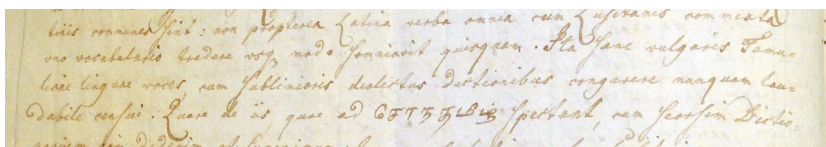 tiis communes sint: non propterea Latina verba omnia cum Lusitanis commixta
uno vocabulario tradere usq. modo somniavit quisquam. Ita sane vulgaris Tamu-
licae linguae voces, cum sublimioris dialectus dictionibus congerere nunquam lau-
dabile censui: Quare de iis, quae ad செந்தமிழ் spectant, cum seorsim Dictio-